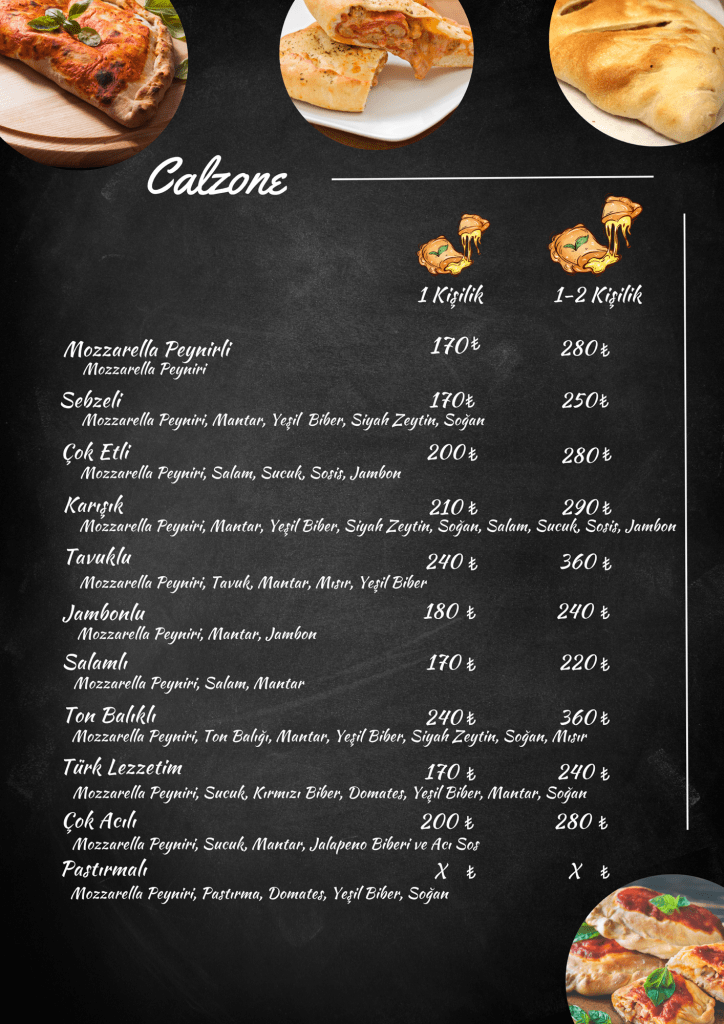 Calzone
1 Kişilik 1-2 Kişilik
Mozzarella Peynirli 170₺ 280₺
Mozzarella Peyniri
Sebzeli 170₺ 250₺
Mozzarella Peyniri, Mantar, Yeşil Biber, Siyah Zeytin, Soğan
Çok Etli 200₺ 280₺
Mozzarella Peyniri, Salam, Sucuk, Sosis, Jambon
Karışık 210 ₺ 290 ₺
Mozzarella Peyniri, Mantar, Yeşil Biber, Siyah Zeytin, Soğan, Salam, Sucuk, Sosis, Jambon
Tavuklu 240 ₺ 360 ₺
Mozzarella Peyniri, Tavuk, Mantar, Mısır, Yeşil Biber
Jambonlu 180 ₺ 240 ₺
Mozzarella Peyniri, Mantar, Jambon
Salamlı 170 ₺ 220 ₺
Mozzarella Peyniri, Salam, Mantar
Ton Balıklı 240 ₺ 360 ₺
Mozzarella Peyniri, Ton Balığı, Mantar, Yeşil Biber, Siyah Zeytin, Soğan, Mısır
Türk Lezzetim 170 ₺ 240 ₺
Mozzarella Peyniri, Sucuk, Kırmızı Biber, Domates, Yeşil Biber, Mantar, Soğan
Çok Acılı 200 ₺ 280 ₺
Mozzarella Peyniri, Sucuk, Mantar, Jalapeno Biberi ve Acı Sos
Pastırmalı X ₺ X ₺
Mozzarella Peyniri, Pastırma, Domates, Yeşil Biber, Soğan